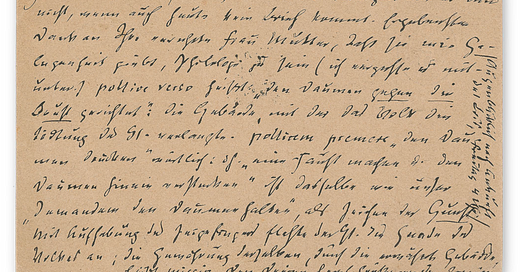 nicht, wenn auch heute kein Brief kommt. Ergebensten
Dank an Ihre verehrte Frau Mutter, daß sie mir Ge-
legenheit giebt, Philologe zu sein (ich vergesse es mit-
unter). pollice verso heißt: „den Daumen gegen die
Brust gerichtet": die Gebärde, mit der das Volk die
Tödtung des Gl. verlangte. pollicem premere „den Dau-
men drücken" wörtlich: d. h. „eine Faust machen u. den
Daumen hinein verstecken" ist dasselbe wie unser
„Jemandem den Daumen halten", als Zeichen der Gunst
Mit Aufhebung des Zeigefingers flehte der Gl. die Gnade des
Volkes an; die Gewährung derselben, durch die erwähnte Gebärde.